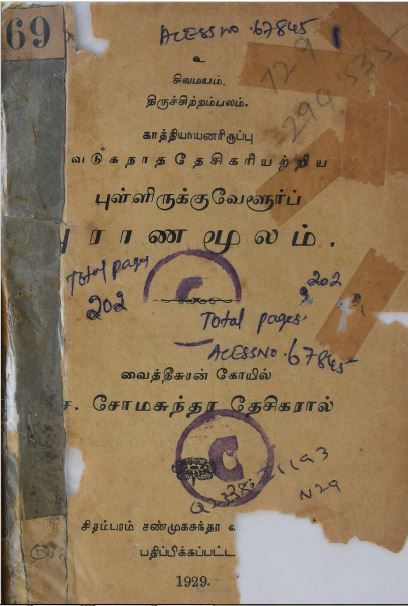 69
ACESSNO .67845
உ
சிவமயம்.
திருச்சிற்றம்பலம்.
729
294.535
காத்தியாயனரிருப்பு
வடுகநாததேசிகரியற்றிய
புள்ளிருக்குவேளூர்ப்
புராணமூலம்.
Total pages
202
202
Total pages.
ACESSNO .67845
வைத்தீசுரன் கோயில்
ச. சோமசுந்தர தேசிகரால்
N29
சிதம்பரம் சண்முகசுந்தர
பதிப்பிக்கப்பட்ட
1929.